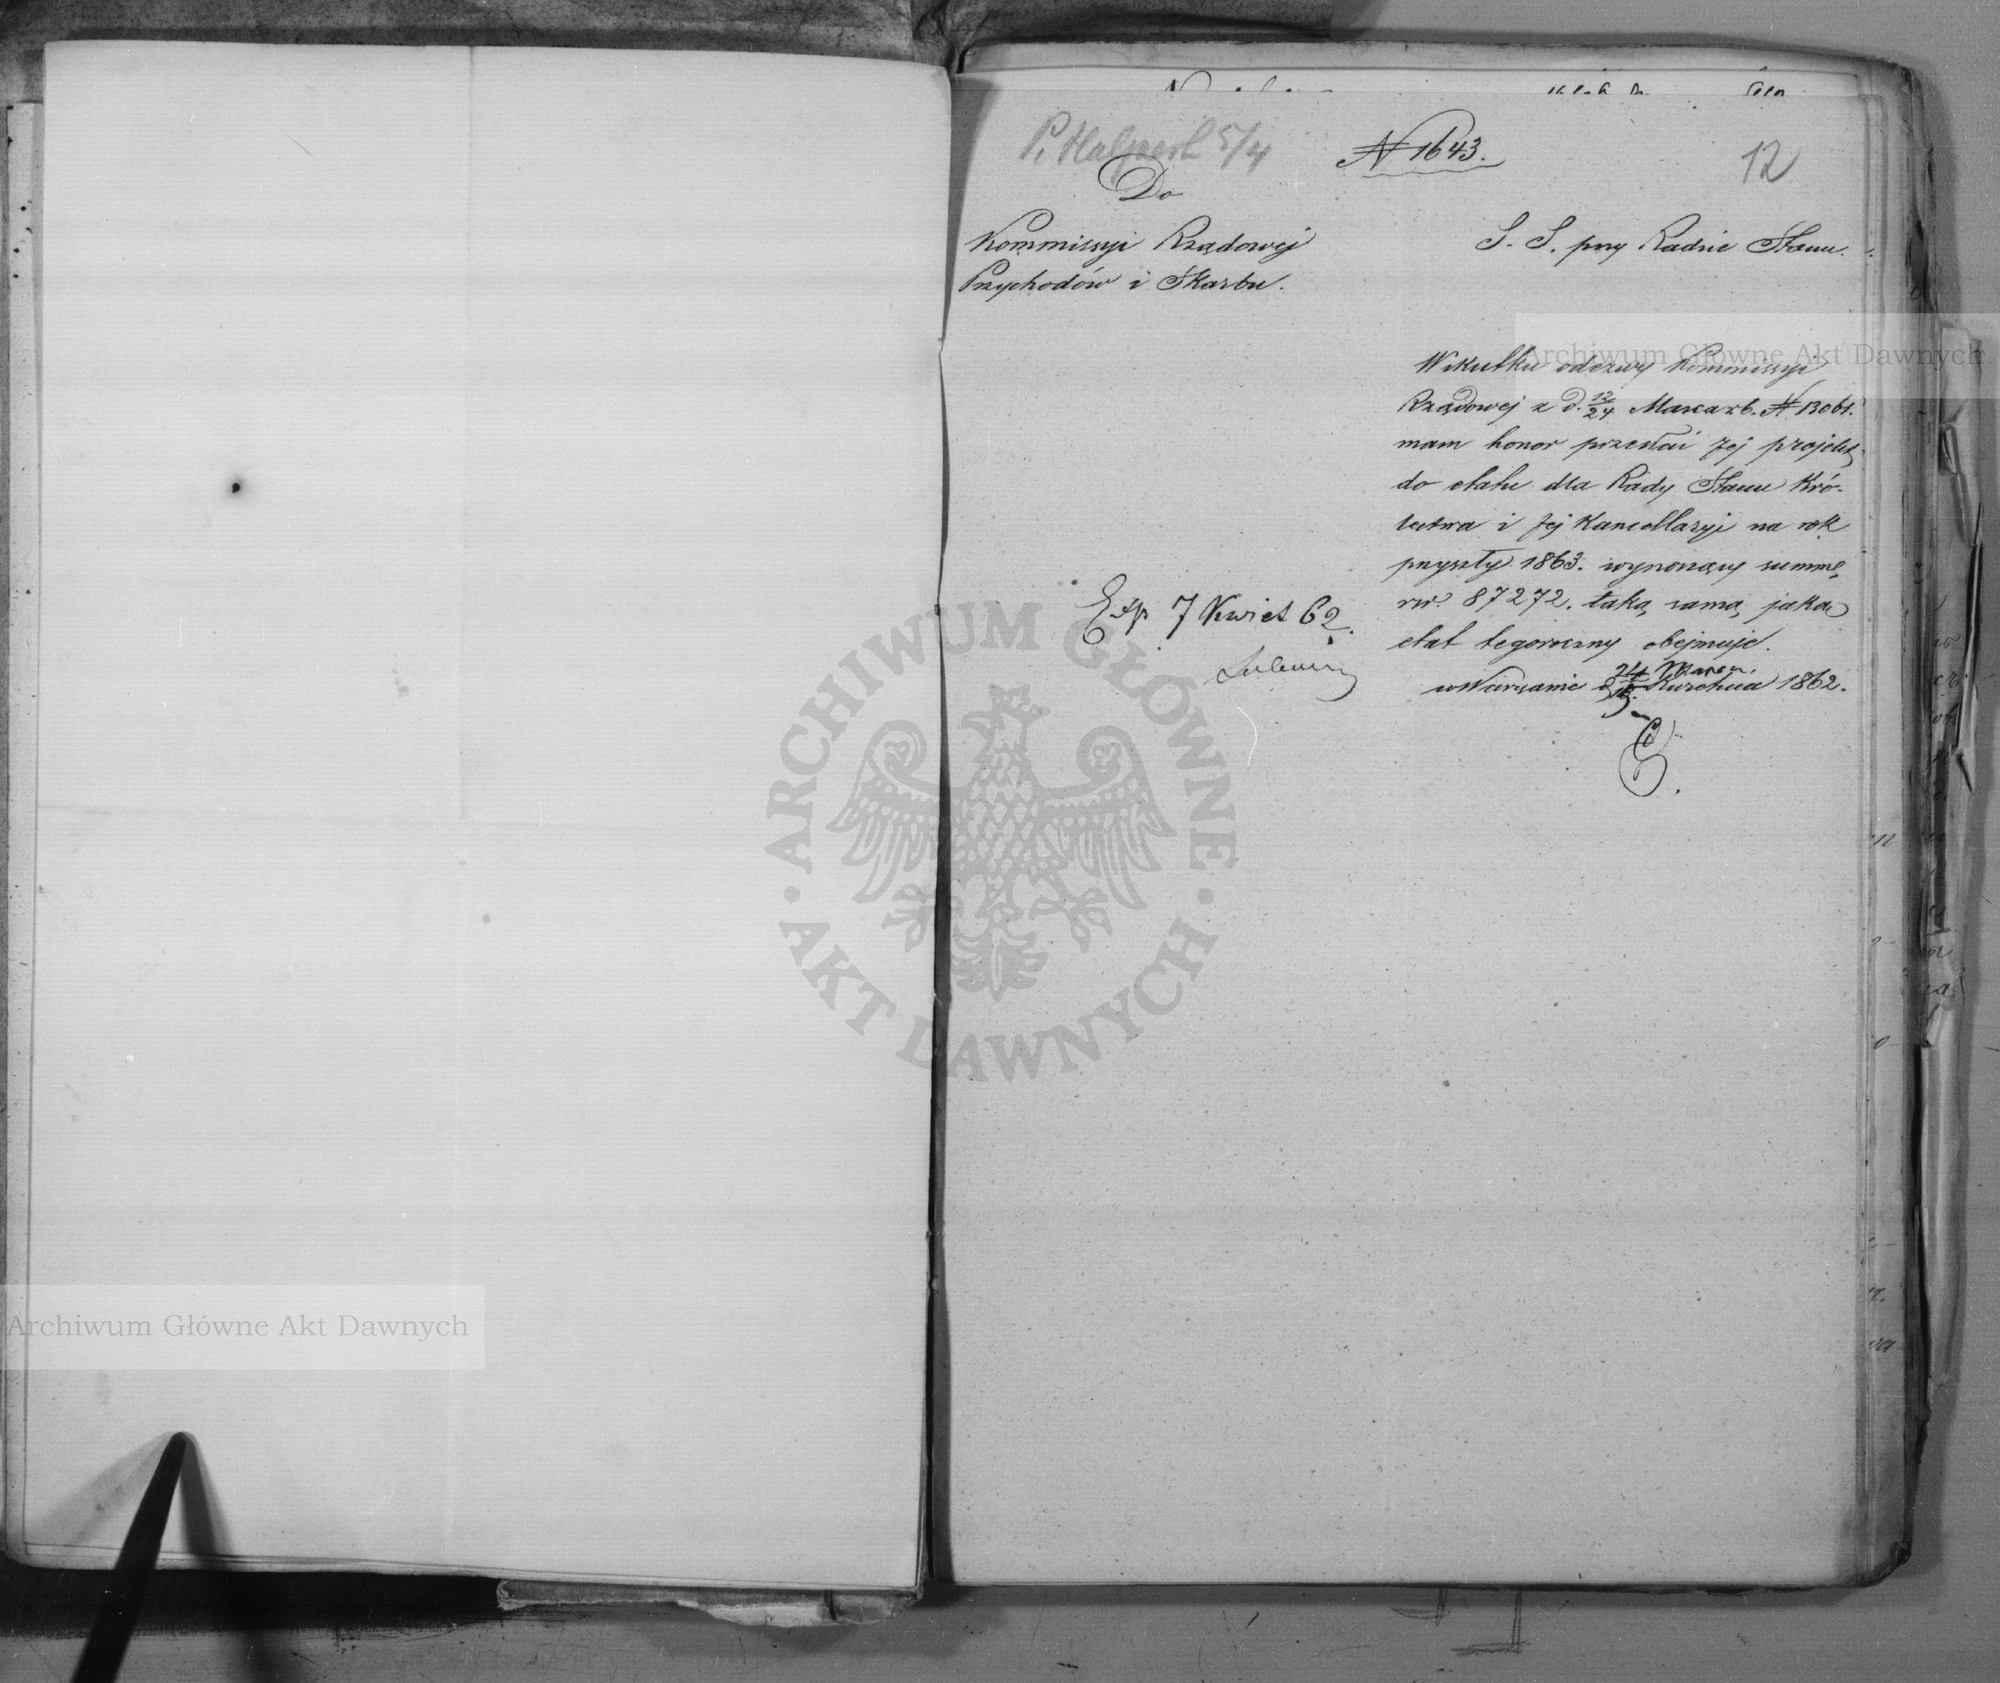 P. Halpert 5/4
N 1643.
12
Do
Kommissyi Rządowej
Przychodów i Skarbu.
S. S. przy Radzie Stanu.
Wskutku odezwy Kommissyi
Rządowej z d. 12/24 Marca r b. N 13061.
mam honor przesłać Jej projekt
do etatu dla Rady Stanu Kró-
lestwa i Jej Kancellaryi na rok
przyszły 1863. wynoszący summę
rsr. 87272. taką samą jaką
etat tegoroczny obejmuje.
w Warszawie d. 24 Marca 1862.
5.
Exp 7 Kwiet 62.
Archiwum Główne Akt Dawnych
ARCHIWUM GŁÓWNE
AKT DAWNYCH
Archiwum Główne Akt Dawnych